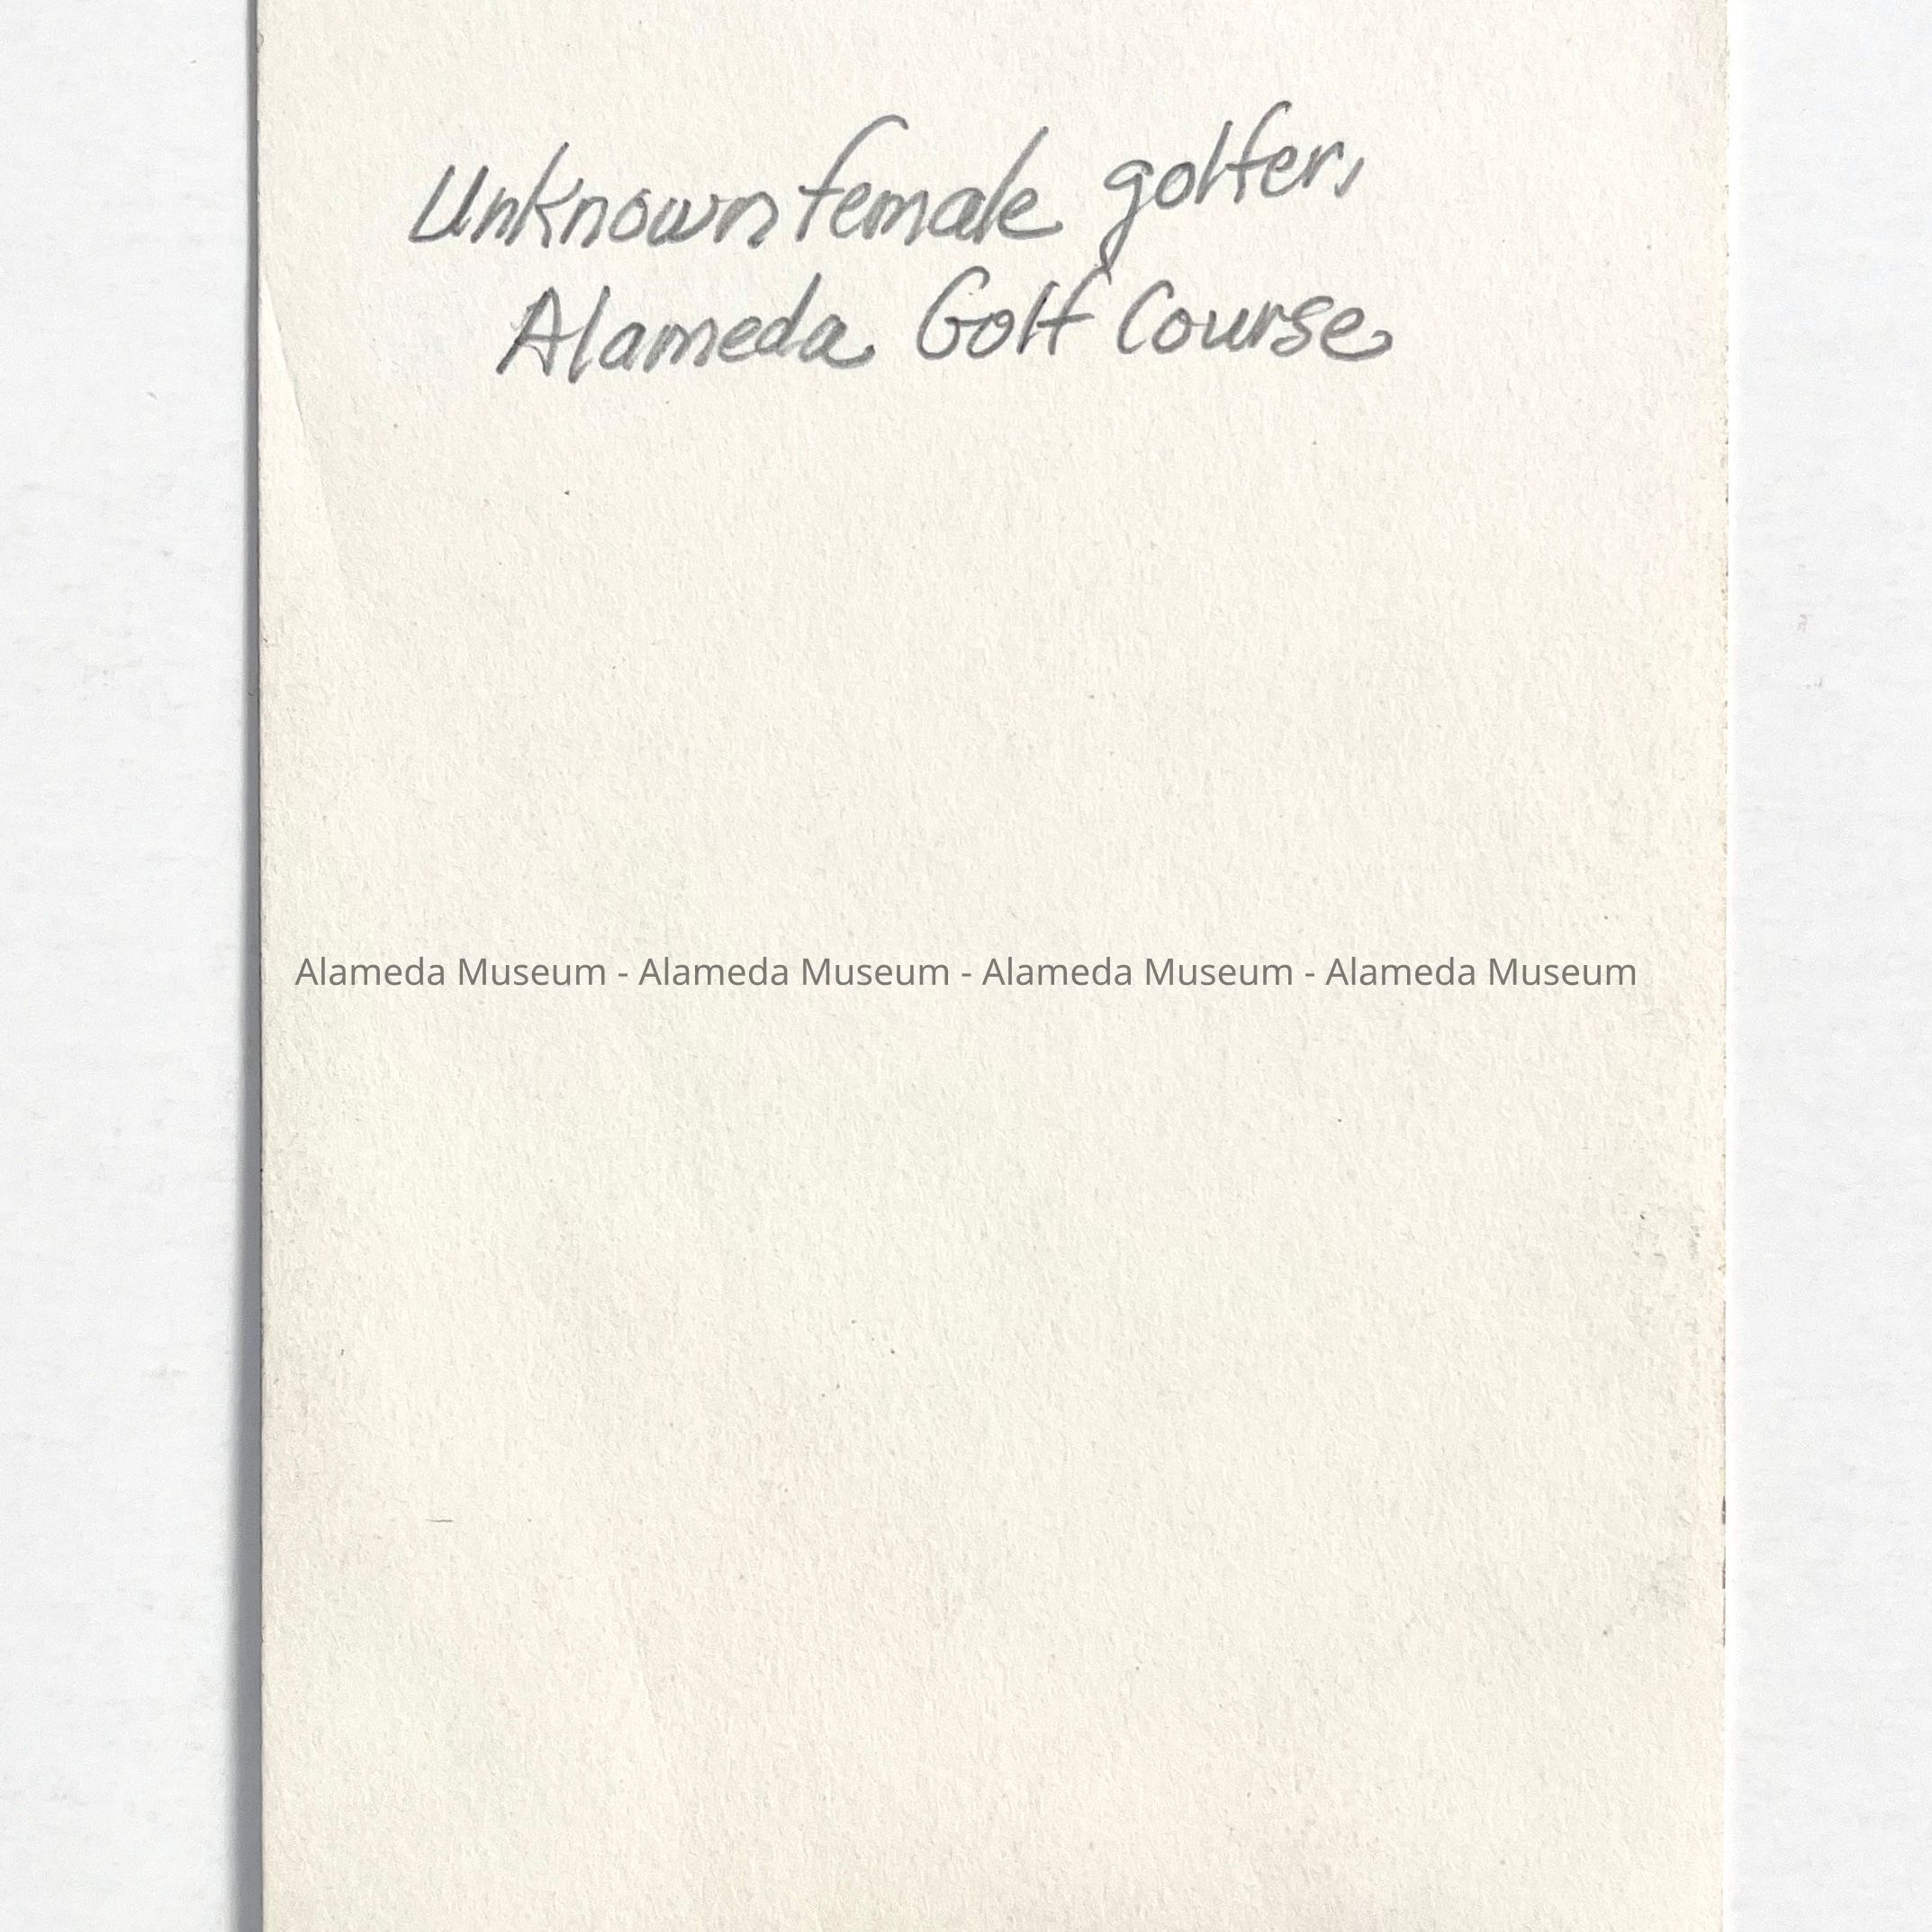 Unknown female golfer,
Alameda Golf Course
Alameda Museum - Alameda Museum - Alameda Museum - Alameda Museum